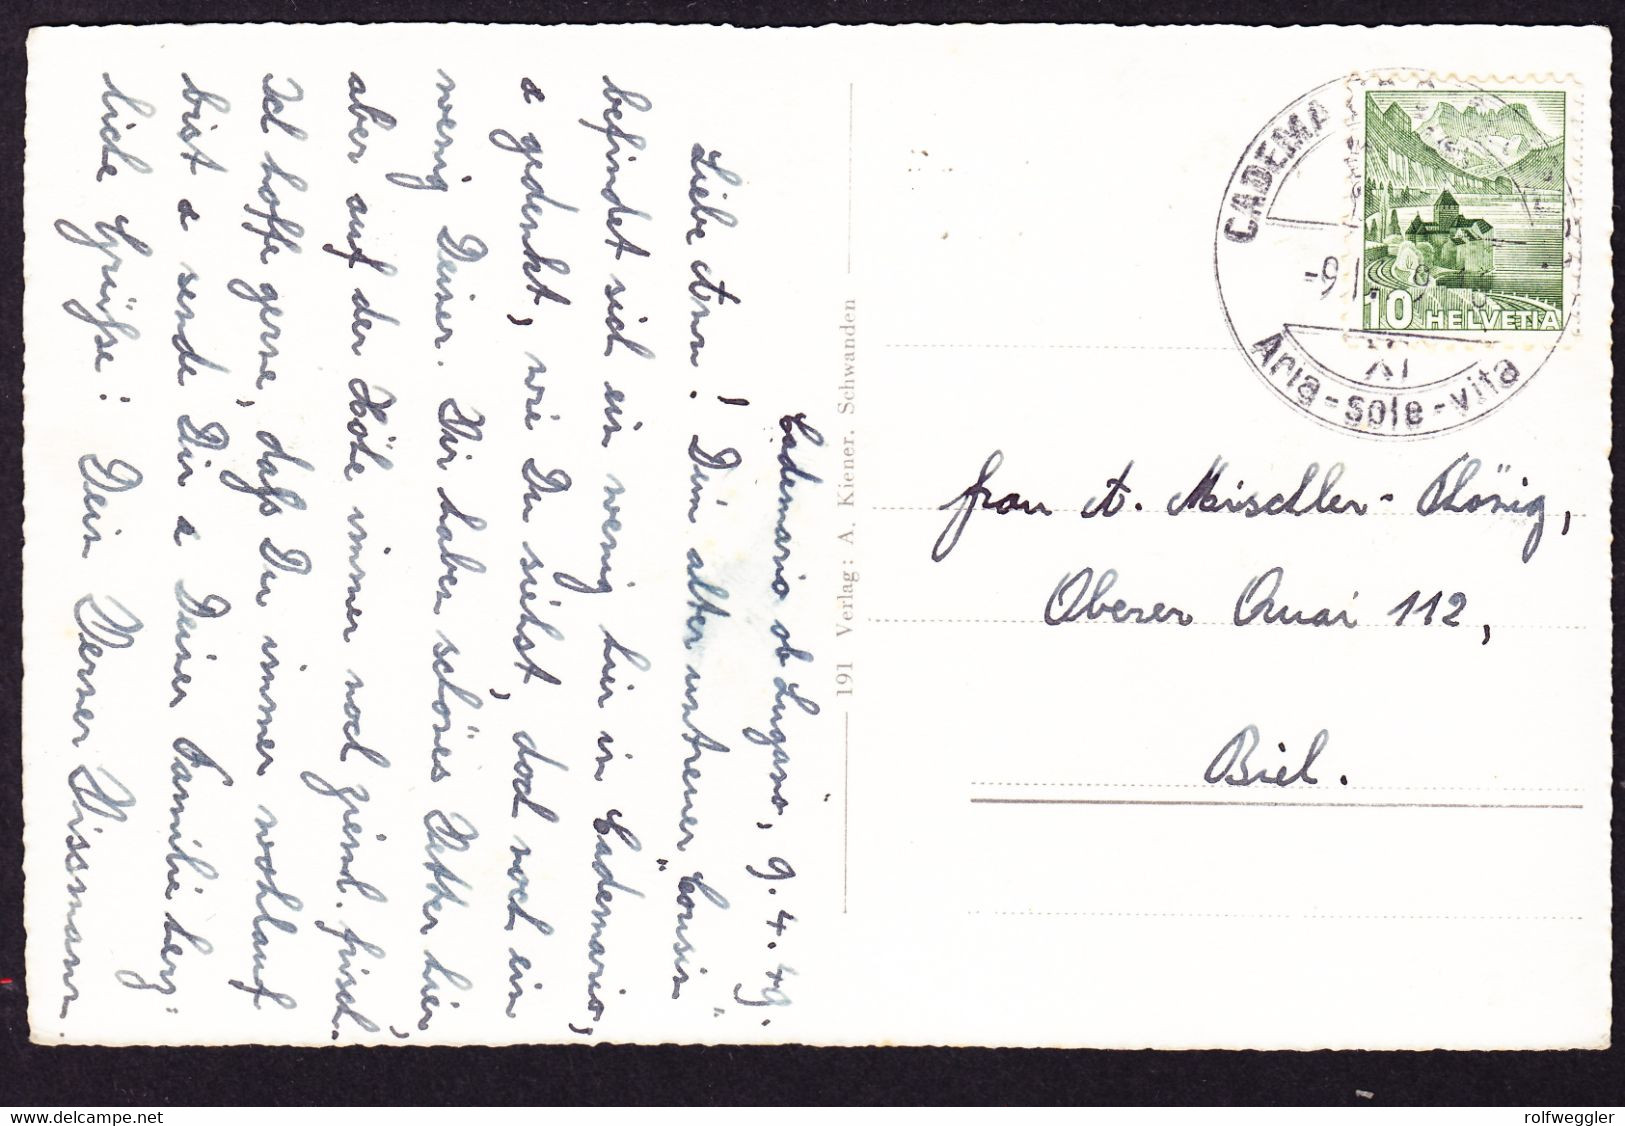 Cademario ob Lugano, 9.4.49.
Liebe Ann! Dein alter untreuer "Cousin"
befindet sich ein wenig hier in Cademario,
& gedenkt, wie Du siehst, doch noch ein
wenig Deiner. Wir haben schönes Wetter hier,
aber auf der Höhe immer noch ziemL. frisch.
Ich hoffe gerne, dass Du immer wohlauf
bist & sende Dir & Deiner Familie herz-
liche Grüsse: Dein Werner Wissmann.
191 Verlag: A. Kiener. Schwanden
CADEMA
-9.
XI
Aria-sole-vita
10 HELVETIA
Frau A. Mischler-König,
Oberer Quai 112,
Biel.
delcampe.net
rolfweggler